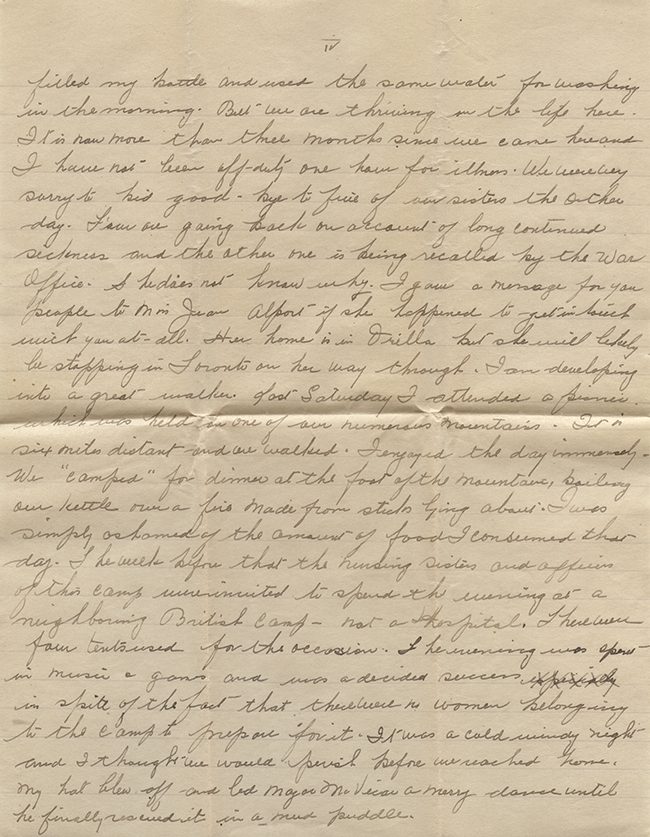 iv
filled my bottle and used the same water for washing
in the morning. But we are thriving on the life here.
It is now more than three months since we came here and
I have not been off-duty one hour for illness. We were very
sorry to bid good-bye to five of our sisters the other
day. Four are going back on account of long continued
sickness and the other one is being recalled by the War
Office. She does not know why. I gave a message for you
people to Miss Jean Alport if she happened to get in touch
with you at-all. Her home is in Orillia but she will likely
be stopping in Toronto on her way through. I am developing
into a great walker. Last Saturday I attended a picnic
which was held on one of our numerous mountains. It is
six miles distant and we walked. I enjoyed the day immensely.
We "camped" for dinner at the foot of the mountain, boiling
our kettle over a fire made from sticks lying about. I was
simply ashamed of the amount of food I consumed that
day. The week before that the nursing sisters and officers
of this camp were invited to spend the evening at a
neighbouring British Camp - not a Hospital. There were
four tents used for the occasion. The evening was spent
in music & games and was a decided success especially
in spite of the fact that there were no women belonging
to the camp to prepare for it. It was a cold windy night
and I thought we would perish before we reached home.
My hat blew off and led Major McVicar a merry dance until
he finally rescued it in a mud puddle.